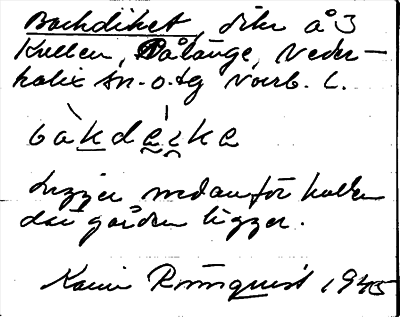 Backdiket, dike å 3
Kullen, Pålänge, Neder-
kalix sn. o. tg Norrb. l.
bàkdèike
Ligger nedanför kullen
där gården ligger.
Karin Rönnquist 1945